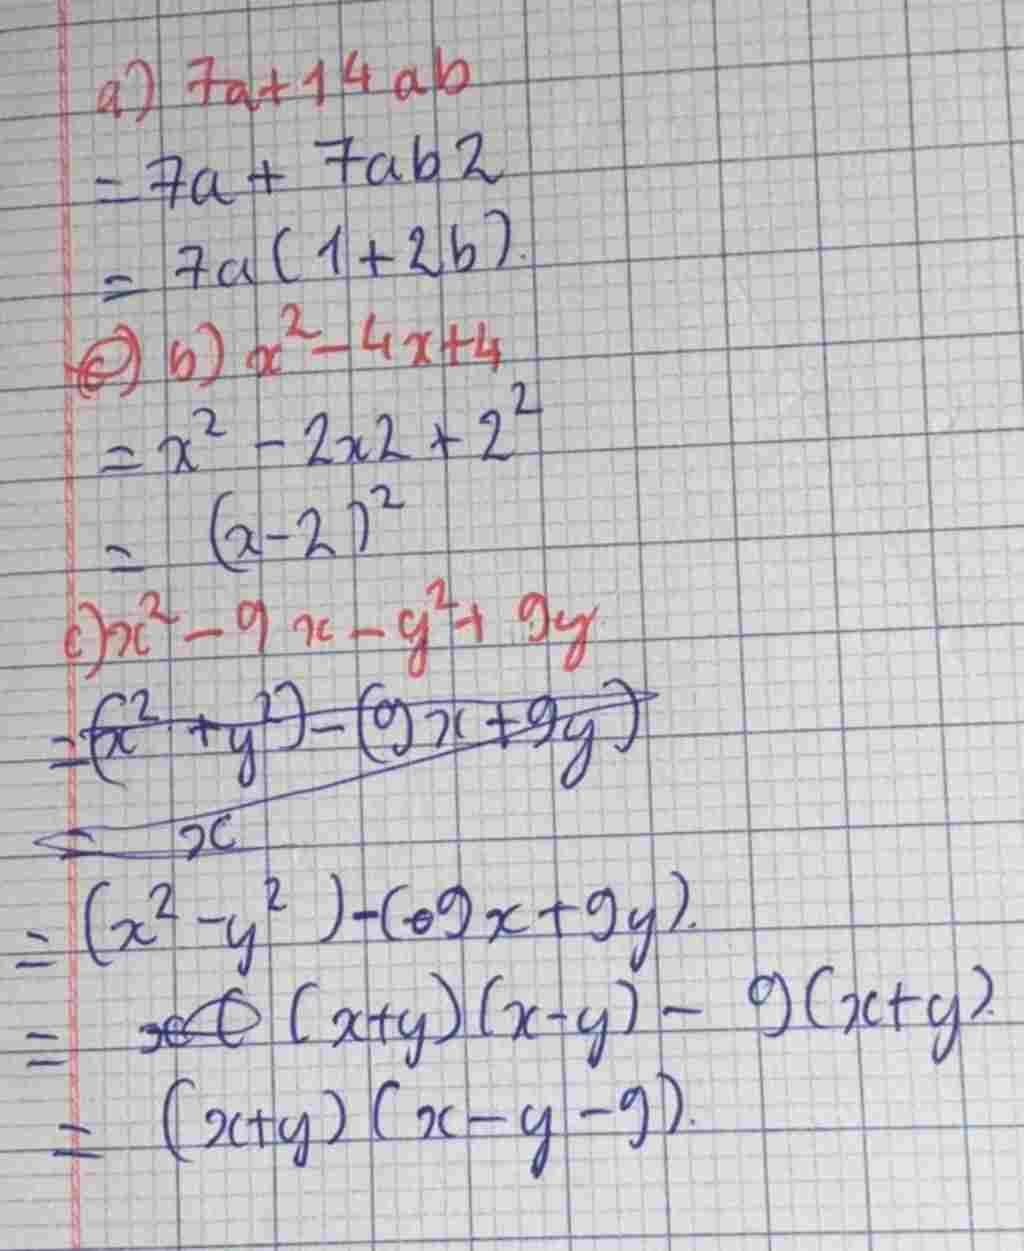 a) 7a+14ab
= 7a + 7ab2
= 7a(1+2b).
c) b) x² - 4x+4
= x² - 2x2 + 2²
= (x-2)²
c) x² - 9x - y² + 9y
= (x² + y²) - (9x + 9y)
= x
= (x² - y²) - (9x + 9y).
= (x+y)(x-y) - 9(x+y).
= (x+y)(x-y-9).